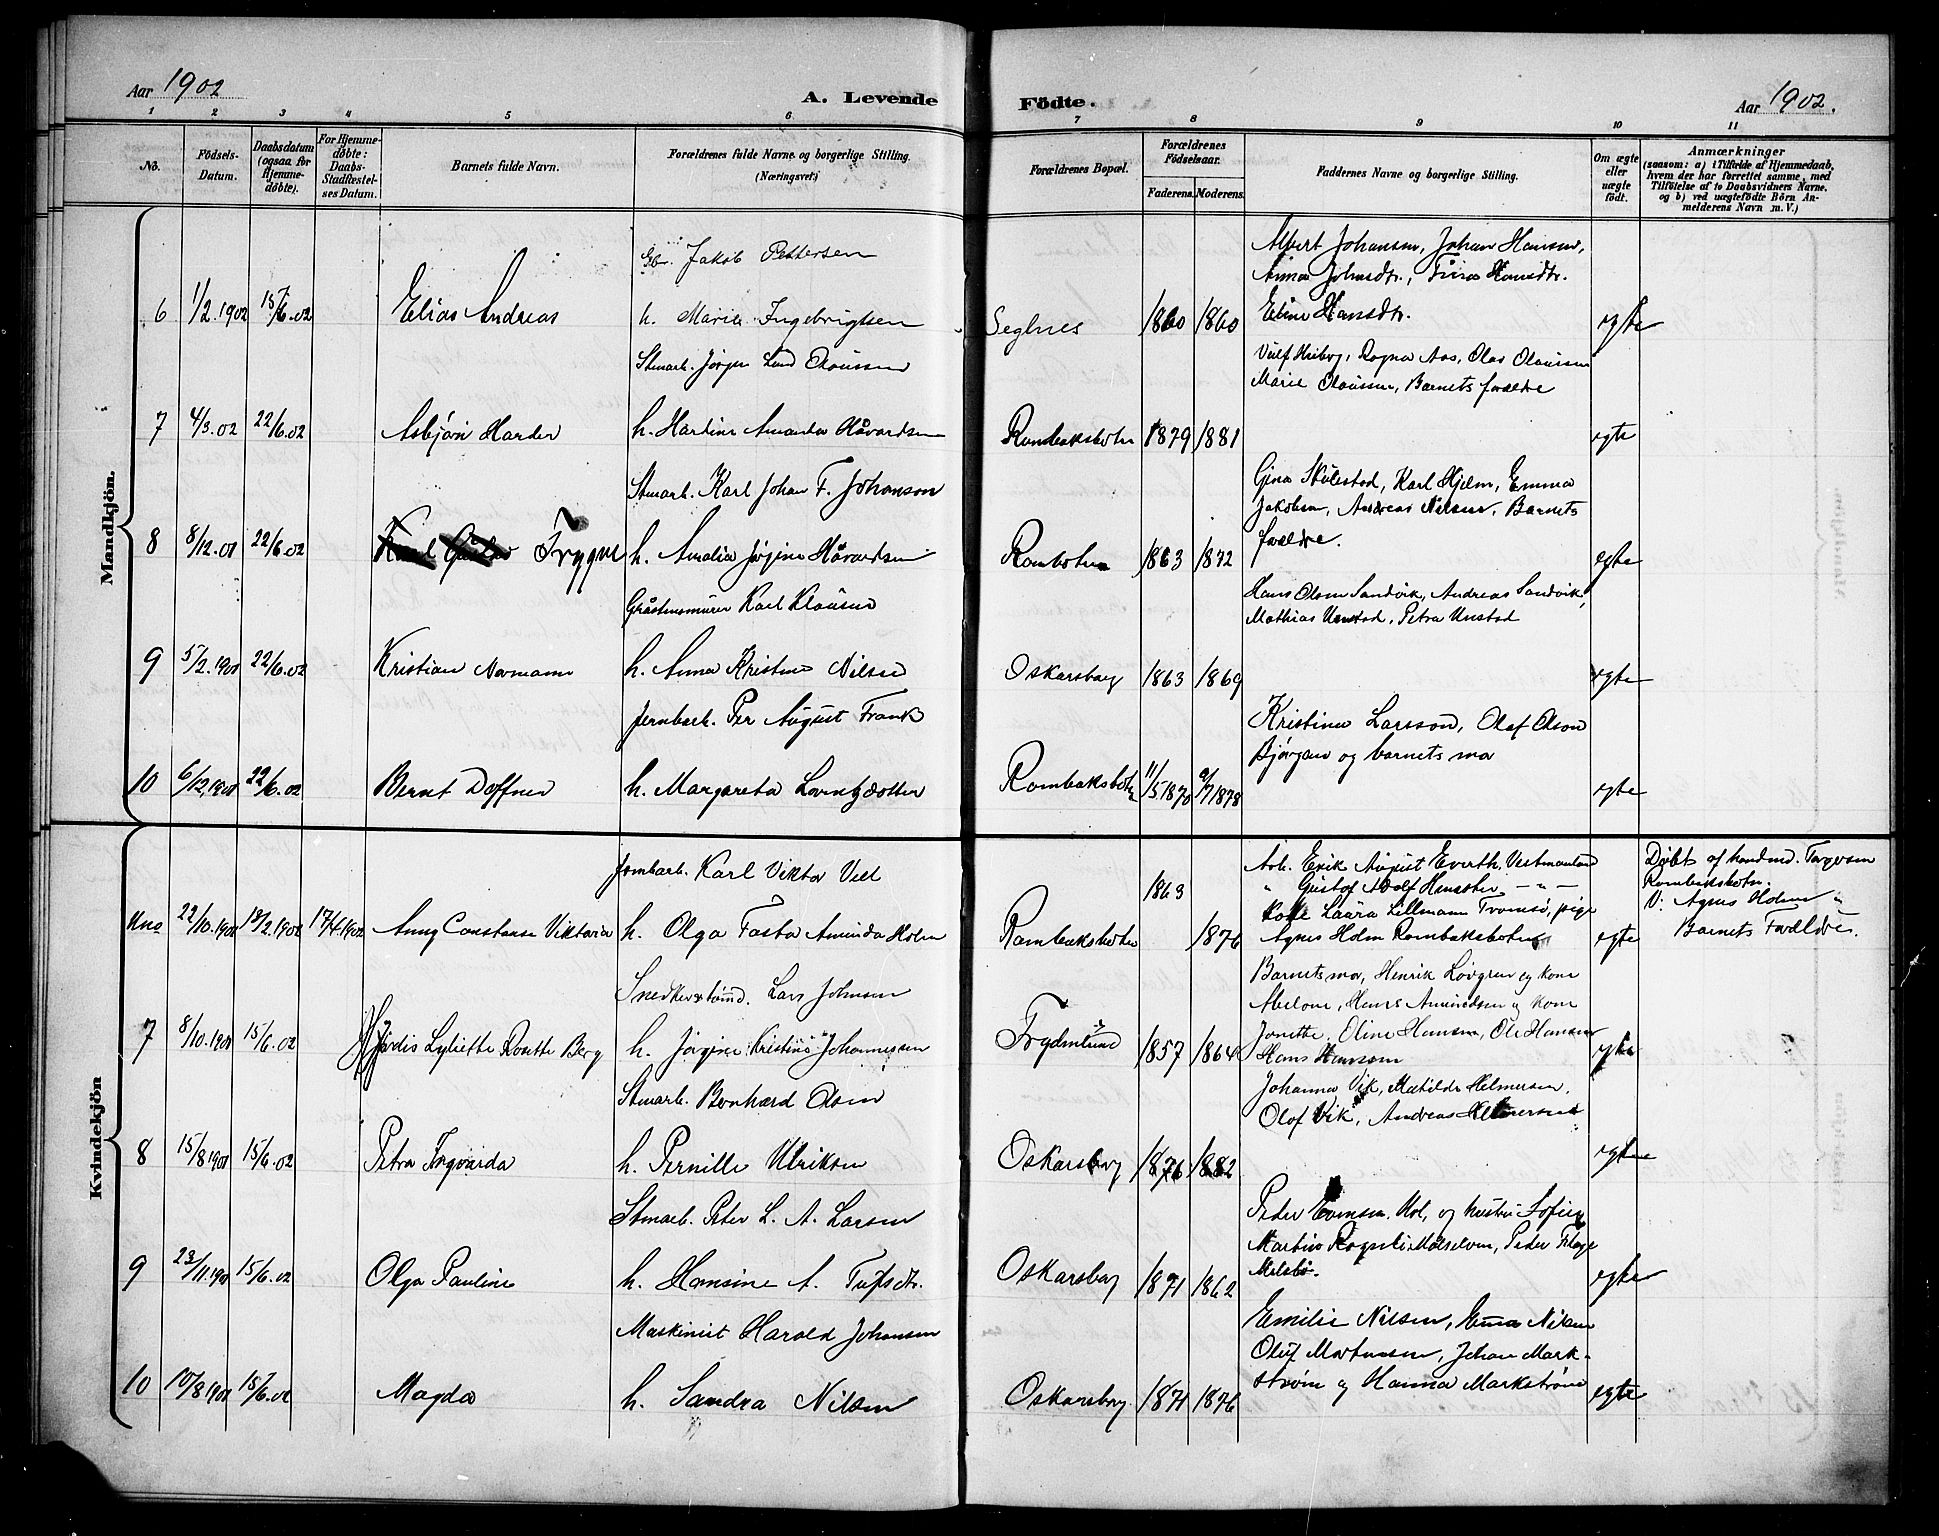 Aar 1902
A. Levende
Födte.
Aar 1902.
1 2 3 4 5 6 7 8 9 10 11
No.
Födsels-
Datum.
Daabsdatum
(ogsaa for
Hjemme-
døbte).
For Hjemme-
døbte:
Daabs-
Stadfæstel-
ses Datum.
Barnets fulde Navn.
Forældrenes fulde Navne og borgerlige Stilling.
(Næringsvei)
Forældrenes Bopæl.
Forældrenes
Födselsaar.
Faderens. Moderens.
Faddernes Navne og borgerlige Stilling.
Om ægte
eller
uægte
födt.
Anmærkninger
(saasom: a) i Tilfælde af Hjemmedaab,
hvem der har forrettet samme, med
Tilföielse af to Daabsvidners Navne.
og b) ved uægtefödte Börn An-
melderens Navn m. V.)
Mandkjön.
Gbr. Jakob Pettersen
6 1/2.1902 15/6.02 Elias Andreas h. Marie Ingebrigtsen Seglnes 1860 1860 egte
Albert Johansen, Johan Hansen,
Anna Johnsdtr., Hansdtr.
Eline Hansdtr.
Stenarb. Jørgen Lund Olaussen
7 4/3.02 22/6.02 Asbjørn Harder h. Hartine Amanda Håvardsen Rombaksbotn 1879 1881 egte
Ragna Aas, Olav Olaussen
Marie Olaussen, Barnets forældre
Stenarb. Karl Johan F. Johanson
8 8/12.01 22/6.02 Karl Trygve h. Amalia Jørgine Håvardsen Rombotn 1863 1872 egte
Gina Skulestad, Karl Hjelm, Emma
Jakobsen, Andreas Nilsen, Barnets
forældre.
Gråstensmurer Karl Klausen
9 5/2.1901 22/6.02 Kristian Normann h. Anna Kristine Nilsen Oskarsborg 1863 1869 egte
Hans Olsen Sandvik, Andreas Sandvik,
Mathias Unstad, Petra Unstad
Jernbarb. Per August Frank
10 6/12.1901 22/6.02 Bernt Doffner h. Margareta Lorentzdotter Rombaksbotn 11/5.1870 9/7 1878 egte
Kristine Larsson, Olaf Olson
Bjørgan og barnets mor
Kvindekjön
Jernbarb. Karl Viktor Vell
22/10.1901 18/2.1902 17/4.1902 Anny Constanse Viktoria h. Olga Fasta Aminda Holm Rombaksbotn 1863 1876 egte
Arb. Erik August Everth, Vestmanland
" Gustaf Adolf " "
Laura Lillmann Tromsø, pige
Agnes Holm Rombaksbotn
Døbt af handmd. Torgersen
Rombaksbotn.
V: Agnes Holm "
Barnets Forældre.
Snedker Lars Johnsen
7 8/10.1901 15/6.02 Hjørdis Lyliette Rosette Berg h. Jørgine Kristine Johannessen Trydenlund 1857 1864 egte
Barnets mor, Henrik Løvgren og kone
Abelone, Hans Amundsen og kone
Jonette, Oline Hansen, Ole Hansen
Hans Hansen
Stenarb. Bernhard Olsen
8 15/8 1901 15/6.02 Petra Ingvarda h. Pernille Ulriksen Oskarsborg 1876 1882 egte
Johanna Vik, Matilde Helmersen,
Olaf Vik, Andreas Helmersen
Stenarb. Peter L. A. Larsen
9 23/11.1901 15/6.02 Olga Pauline h. Hansine A. Oskarsborg 1871 1862 egte
Peder Evensen, Mol, og hustru Sofie,
Martin Målselven, Peder
Maskinist Harald Johansen
10 10/8 1901 15/6.02 Magda h. Sandra Nilsen Oskarsborg 1871 1876 egte
Emilie Nilsen, Nilsen
Oluf Martinsen, Johan Mark-
strøm og Hanna Markstrøm